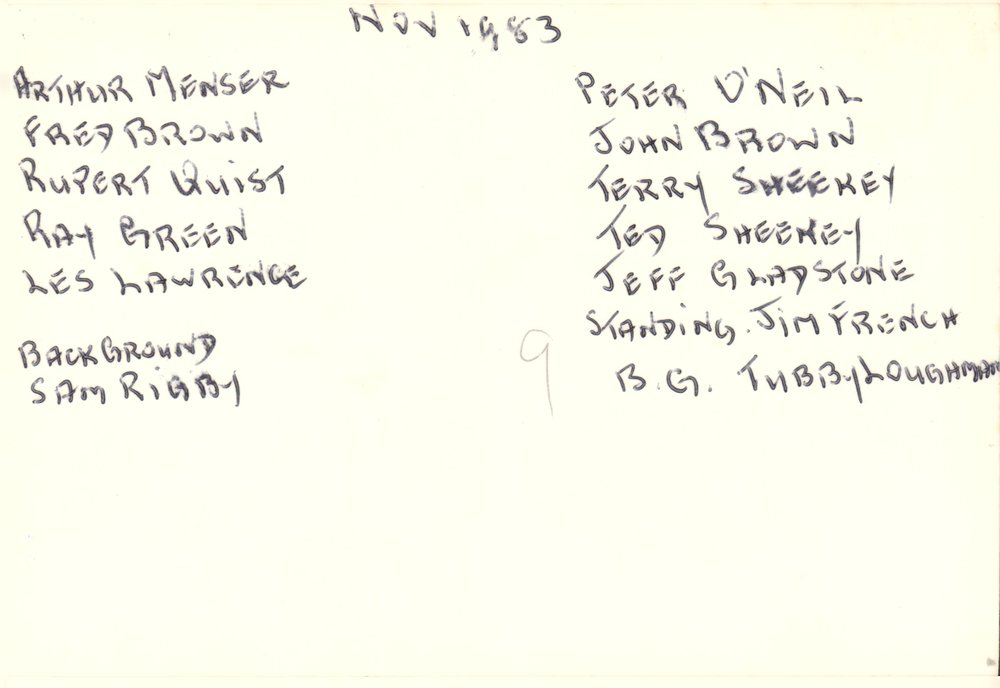 NOV 1983
ARTHUR MENSER
FRED BROWN
RUPERT QUIST
RAY GREEN
LES LAWRENCE
BACKGROUND
SAM RIGBY
PETER O'NEIL
JOHN BROWN
TERRY SHEEKEY
TED SHEEKEY
JEFF GLADSTONE
STANDING. JIM FRENCH
B.G. TUBBY LOUGHMAN
9